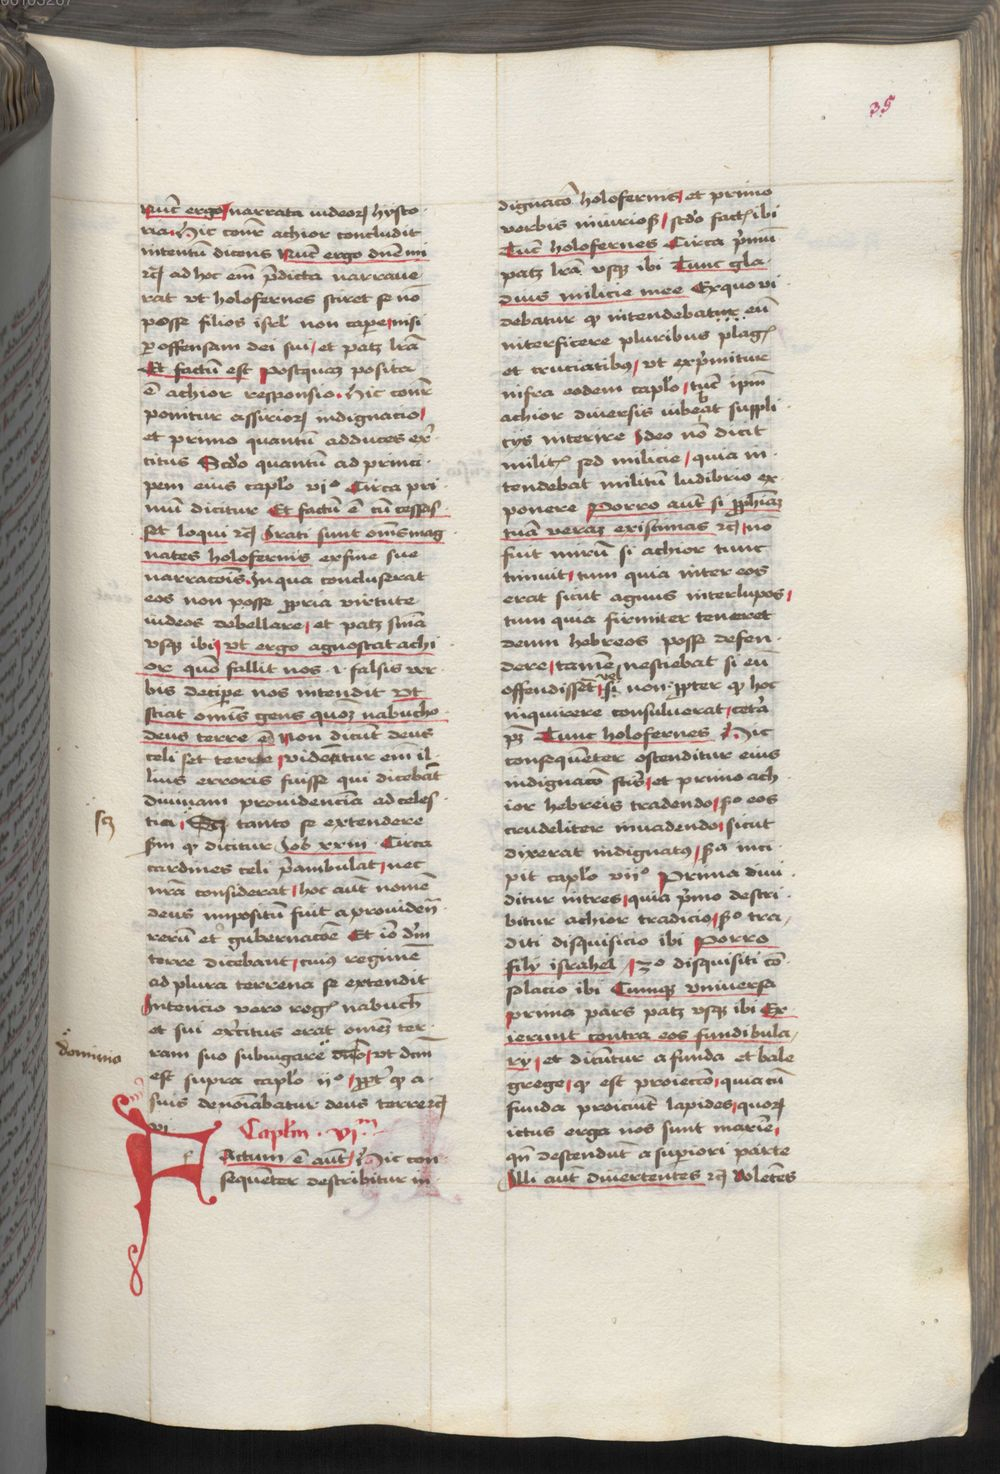 35
Nuc̄ ergo narrata iudeoꝝ hysto
ria. Hic con̄r achior concludit
intentū dicens Nuc̄ ergo dn̄e mi
ꝛcꝭ ad hoc em̄ p̄dicta narraue
rat vt holofernes sciret se nō
posse filios isrl̄ non cape nisi
ꝑ offensam dei sui et patꝫ lr̄a
Et factū est Postquaꝫ posita
ē achior responsio. Hic con̄r
ponitur assirioꝝ indignacio
et primo quantū ad duces ex̄
citus Scd̄o quantū ad princi
pem eius caplo vjº Circa pri
mū dicitur Et factū ē cū cessas
set loqui ꝛcꝭ Irati sunt om̄s mag
nates holofernis ex fine sue
narracōis. In qua concluserat
eos non posse ꝓpria virtute
iudeos debellare et patꝫ sn̄ia
vsqꝫ ibi vt ergo agnoscat achi
or quō fallit nos .i. falsis ver
bis decipe nos intendit vt
sciat om̄is gens quoꝫ nabucho
deus terre ē Non dicūt deus
celi set terre videātur em̄ il
lius erroris fuisse qui dicebāt
diuinam prouidenciā ad celes
tia tanto se extendere
scꝫ
sm̄ qꝫ dicitur Iob xxiij Circa
cardines celi p̄ambulat nec
nr̄a considerat hoc aūt nomē
deus impositū fuit a prouiden̄
rerū et gubernacōe Et iō dm̄
terre dicebant cuiꝰ regimē
ad plura terrena se extendit
Intencio vero regꝭ nabuch̄
et sui ex̄citus erat omeꝫ ter
ram suo subiugare vt dc̄m
dominio
est supra caplo ijº ꝓpt̄ qꝫ a
suis denoīabatur deus terre ꝛcꝭ
Caplm̄ . vjᵐ
Factum ē aūt Hic con
sequenter describitur in
dignacō holofernis et primo
verbis iniuriosꝭ scd̄o factꝭ ibi
Tuc̄ holofernes Circa p̄mū
patꝫ lr̄a vsqꝫ ibi Tunc gla
dius milicie mee Ex quo vi
debatur qꝫ intendebatur eū
interficere pluribus plagꝭ
et cruciatibꝰ vt exp̄mitur
infra eodem caplo tuc̄ ipm̄
achior diuersis iubeat suppli
cijs interire Ideo nō dicit
militꝭ sed milicie quia in
tendebat militū ludibrio ex
ponere Porro aūt si ꝓphiaꝫ
tuā veraꝫ existimas ꝛcꝭ no
fuit mirū si achior tunc
timuit tum quia inter eos
erat sicut agnus inter lupos
tum quia firmiter teneret
deum hebreos posse defen
dere tamē nesciebat si eū
offendissēt vel si non ꝓpter qꝫ hoc
inquirere consuluerat cetā
pꝫ Tunc holofernes Hic
consequēter ostenditur eius
indignacō scīs et primo ach
ior hebreis tradendo sº eos
crudeliter inuadendo sicut
dixerat indignatꝰ sᵃ inci
pit caplo vijº Prima diui
ditur in tres quia p̄mo descri
bitur achior tradicio sº tra
diti disquisicio ibi Porro
filij israhel 3º disquisiti cō
solacio ibi Cumqꝫ vniuersa
prima pars patꝫ vsqꝫ ibi Ex
ierunt contra eos fundibula
rij et dicūtur a funda et bale
grege qꝫ est proiectō quia cū
funda proiciūt lapides quoꝝ
ictus erga nos sunt
qn̄ descendūt a supiori parte
Illi aūt diuertentes ꝛcꝭ volētes